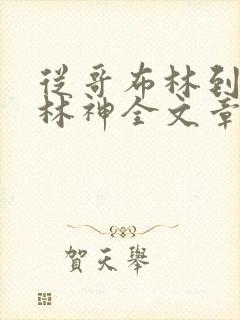 從哥布林到
林神全文章
賀天舉